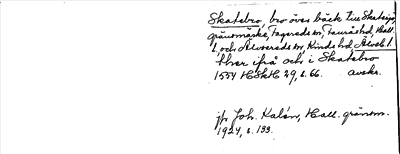 Skatebro, bro över bäck till Skatesjö,
gränsmärke, Fagereds sn, Faurås hd, Hall.
l. och Älvsereds sn, Kinds hd, Älvsb. l.
ifrå och i Skatebro
1554 HSH 29, s. 66. avskr.
jfr Joh. Kalén, Hall. gränsm.
1924, s. 133.